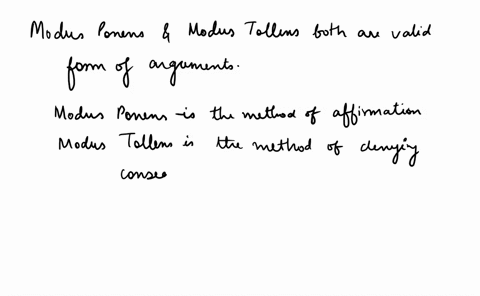 Modus Ponens & Modus Tollens both are valid
form of arguments.
Modus Ponens is the method of affirmation
Modus Tollens is the method of denying
conse